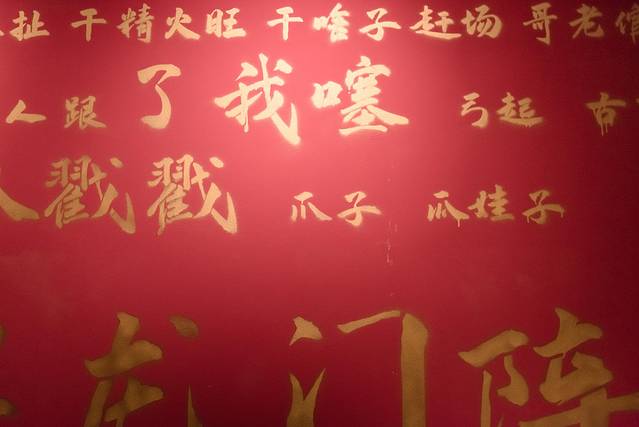 扯 干精火旺 干啥子 赶场 哥老倌
人跟 了我噻 弓起 古
戳戳 爪子 瓜娃子
龙门阵